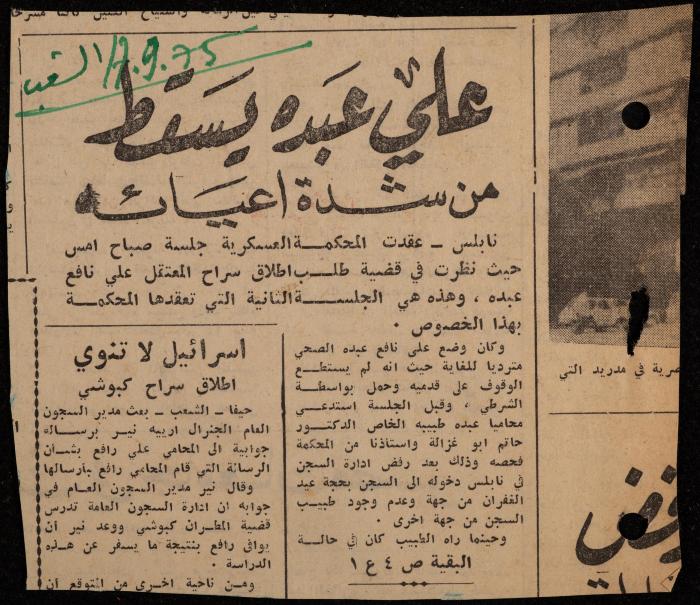 الشعب 17.9.75
علي عبده يسقط
من شدة اعيائه
نابلس ـ عقدت المحكمة العسكرية جلسة صباح امس
حيث نظرت في قضية طلب اطلاق سراح المعتقل علي نافع
عبده ، وهذه هي الجلسة الثانية التي تعقدها المحكمة
بهذا الخصوص .
وكان وضع علي نافع عبده الصحي
مترديا للغاية حيث انه لم يستطع
الوقوف على قدميه وحمل بواسطة
الشرطي ، وقبل الجلسة استدعي
محاميا عبده طبيبه الخاص الدكتور
حاتم ابو غزالة واستاذنا من المحكمة
فحصه وذلك بعد رفض ادارة السجن
في نابلس دخوله الى السجن بحجة عيد
الغفران من جهة وعدم وجود طبيب
السجن من جهة اخرى .
وحينما راه الطبيب كان في حالة
البقية ص ٤ ع ١
اسرائيل لا تنوي
اطلاق سراح كبوشي
حيفا ـ الشعب ـ بعث مدير السجون
العام الجنرال اربيه نير برسالة
جوابية الى المحامي علي رافع بشأن
الرسالة التي قام المحامي رافع بارسالها
وقال نير مدير السجون العام في
جوابه ان ادارة السجون العامة تدرس
قضية المطران كبوشي ووعد نير ان
يوافي رافع بنتيجة ما يسفر عن هذه
الدراسة .
ومن ناحية اخرى من المتوقع ان
صرية في مدريد التي